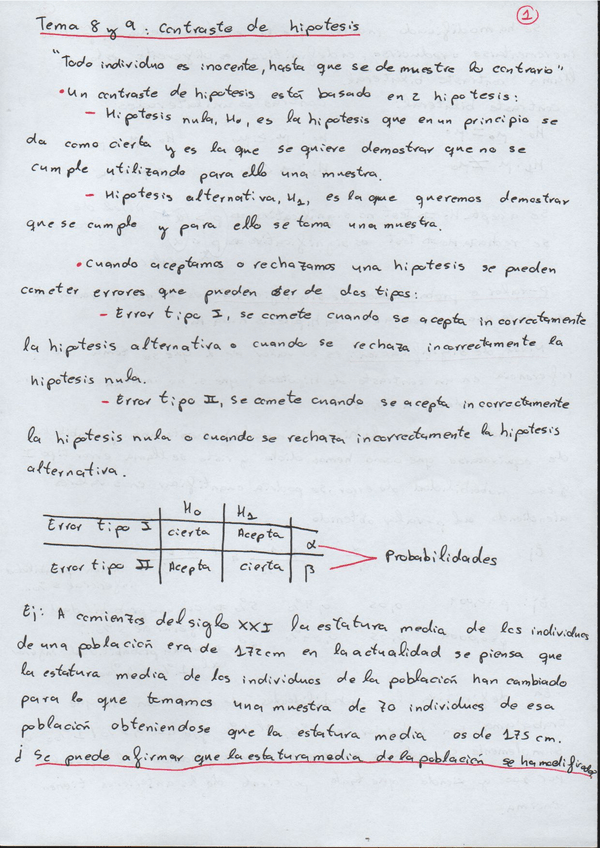 1
Tema 8 y 9: Contraste de hipotesis
"Todo individuo es inocente, hasta que se demuestre lo contrario"
• Un contraste de hipotesis está basado en 2 hipotesis:
- Hipotesis nula, H0, es la hipotesis que en un principio se
da como cierta y es la que se quiere demostrar que no se
cumple utilizando para ello una muestra.
- Hipotesis alternativa, H1, es la que queremos demostrar
que se cumple y para ello se toma una muestra.
• Cuando aceptamos o rechazamos una hipotesis se pueden
cometer errores que pueden ser de dos tipos:
- Error tipo I, se comete cuando se acepta incorrectamente
la hipotesis alternativa o cuando se rechaza incorrectamente la
hipotesis nula.
- Error tipo II, se comete cuando se acepta incorrectamente
la hipotesis nula o cuando se rechaza incorrectamente la hipotesis
alternativa.
H0 H1
Error tipo I cierta Acepta α
Error tipo II Acepta cierta β
Probabilidades
Ej: A comienzos del siglo XXI la estatura media de los individuos
de una población era de 172cm en la actualidad se piensa que
la estatura media de los individuos de la población han cambiado
para lo que tomamos una muestra de 70 individuos de esa
población obteniendose que la estatura media es de 175 cm.
¿ Se puede afirmar que la estatura media de la población se ha modificado